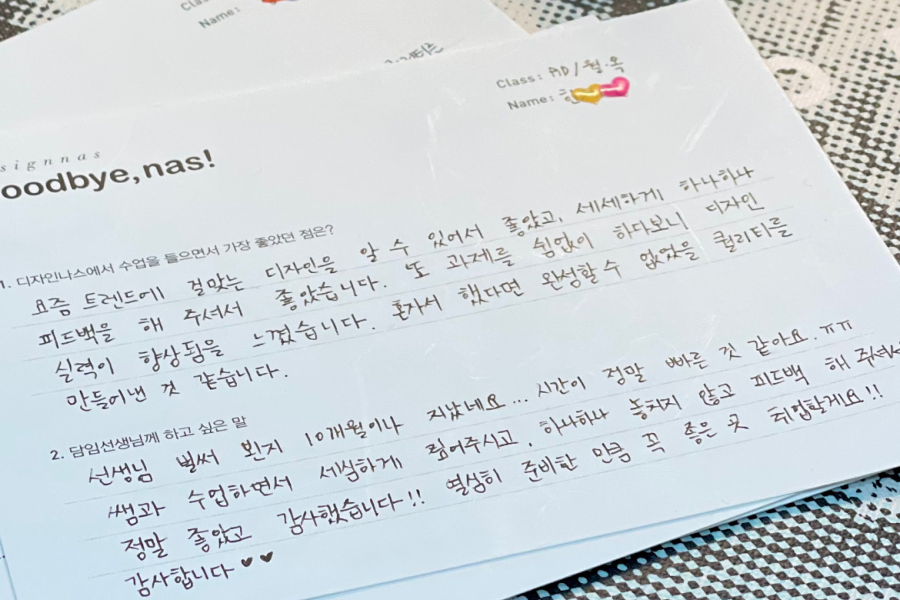 Name:
Class: PD/월·목
Name: 한
signnas
oodbye,nas!
1. 디자인나스에서 수업을 들으면서 가장 좋았던 점은?
요즘 트렌드에 걸맞는 디자인을 알 수 있어서 좋았고, 세세하게 하나하나
피드백을 해 주셔서 좋았습니다. 또 과제를 쉼없이 하다보니 디자인
실력이 향상됨을 느꼈습니다. 혼자서 했다면 완성할 수 없었을 퀄리티를
만들어낸 것 같습니다.
2. 담임선생님께 하고 싶은 말
선생님 벌써 뵌지 10개월이나 지났네요... 시간이 정말 빠른 것 같아요. ㅠㅠ
쌤과 수업하면서 세심하게 짚어주시고, 하나하나 놓치지 않고 피드백 해 주셔서
정말 좋았고 감사했습니다!! 열심히 준비한 만큼 꼭 좋은 곳 취업할게요!!
감사합니다 ♥♥